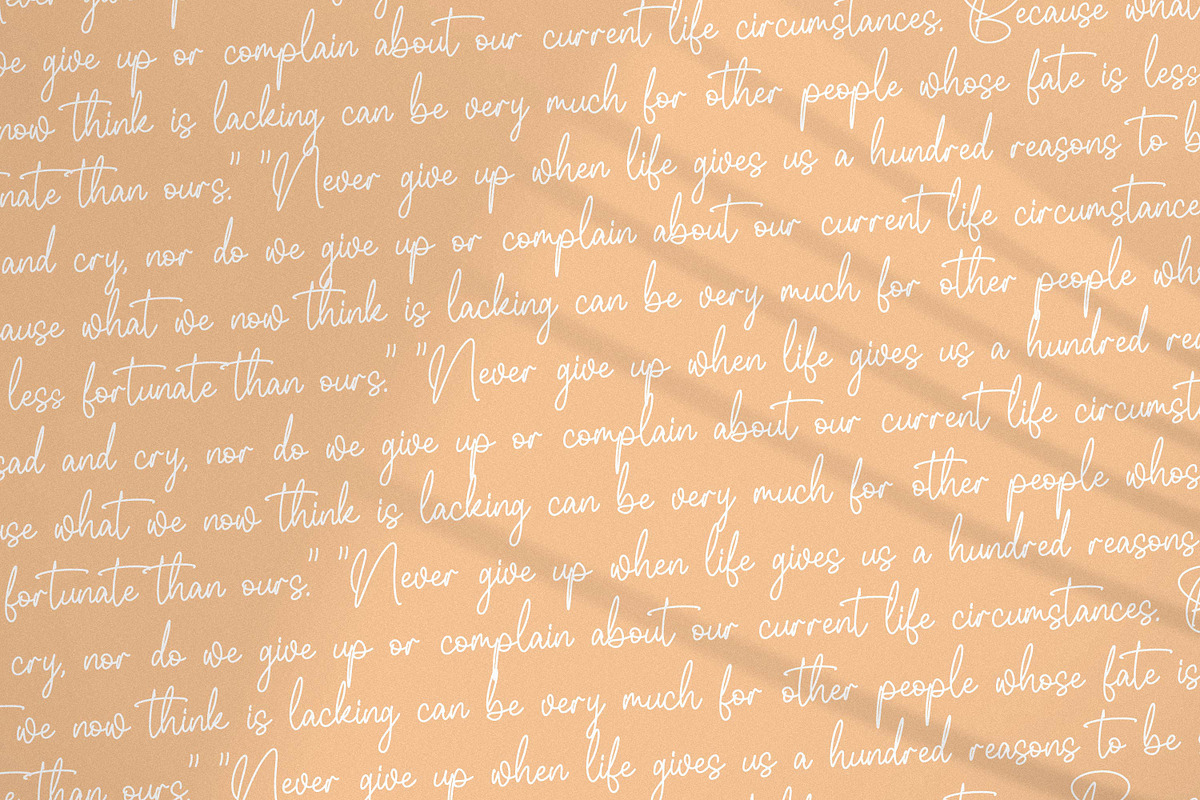 we give up or complain about our current life circumstances. Because what
now think is lacking can be very much for other people whose fate is less
than ours." "Never give up when life gives us a hundred reasons to
and cry, nor do we give up or complain about our current life
what we now think is lacking can be very much for other people
less fortunate than ours." "Never give up when life gives us a hundred
sad and cry, nor do we give up or complain about our current life
what we now think is lacking can be very much for other people
fortunate than ours." "Never give up when life gives us a hundred reasons
cry, nor do we give up or complain about our current life circumstances.
we now think is lacking can be very much for other people whose fate is
than ours." "Never give up when life gives us a hundred reasons to be